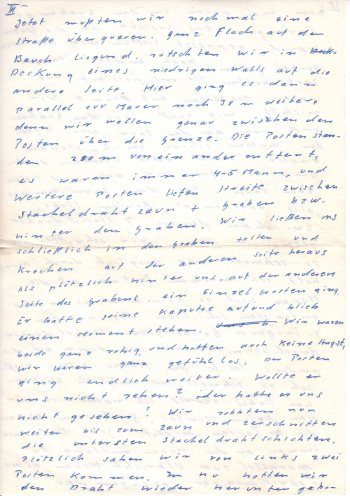 III
Jetzt mußten wir nochmal eine
Straße überqueren. ganz flach auf den
Bauch liegend. rutschten wir in
Deckung eines niedrigen Walls auf die
andere Seite. Hier ging es dann
parallel zur Mauer noch 30 m weiter,
denn wir wollen genau zwischen den
Posten über die Grenze. Die Posten stan-
den 200 m voneinander entfernt,
es waren immer 4-5 Mann, und
weitere Posten liefen Streife zwischen
Stacheldrahtzaun + Graben bzw.
hinter den Graben. Wir ließen uns
schließlich in den Graben rollen und
krochen auf der anderen Seite heraus
als plötzlich hinter uns, auf der anderen
Seite des Grabens ein Einzelposten ging.
Er hatte seine Kapuze auf und blieb
einen Moment stehen. Wir waren
beide ganz ruhig, und hatten auch keine Angst,
wir waren ganz gefühllos. Der Posten
ging endlich weiter. Wollte er
uns nicht sehen? oder hatte er uns
nicht gesehen? Wir robbten nun
weiter bis zum Zaun und zerschnitten
die untersten Stacheldrahtschichten.
Plötzlich sahen wir von links zwei
Posten kommen. Im nu hatten wir
den Draht wieder herunter